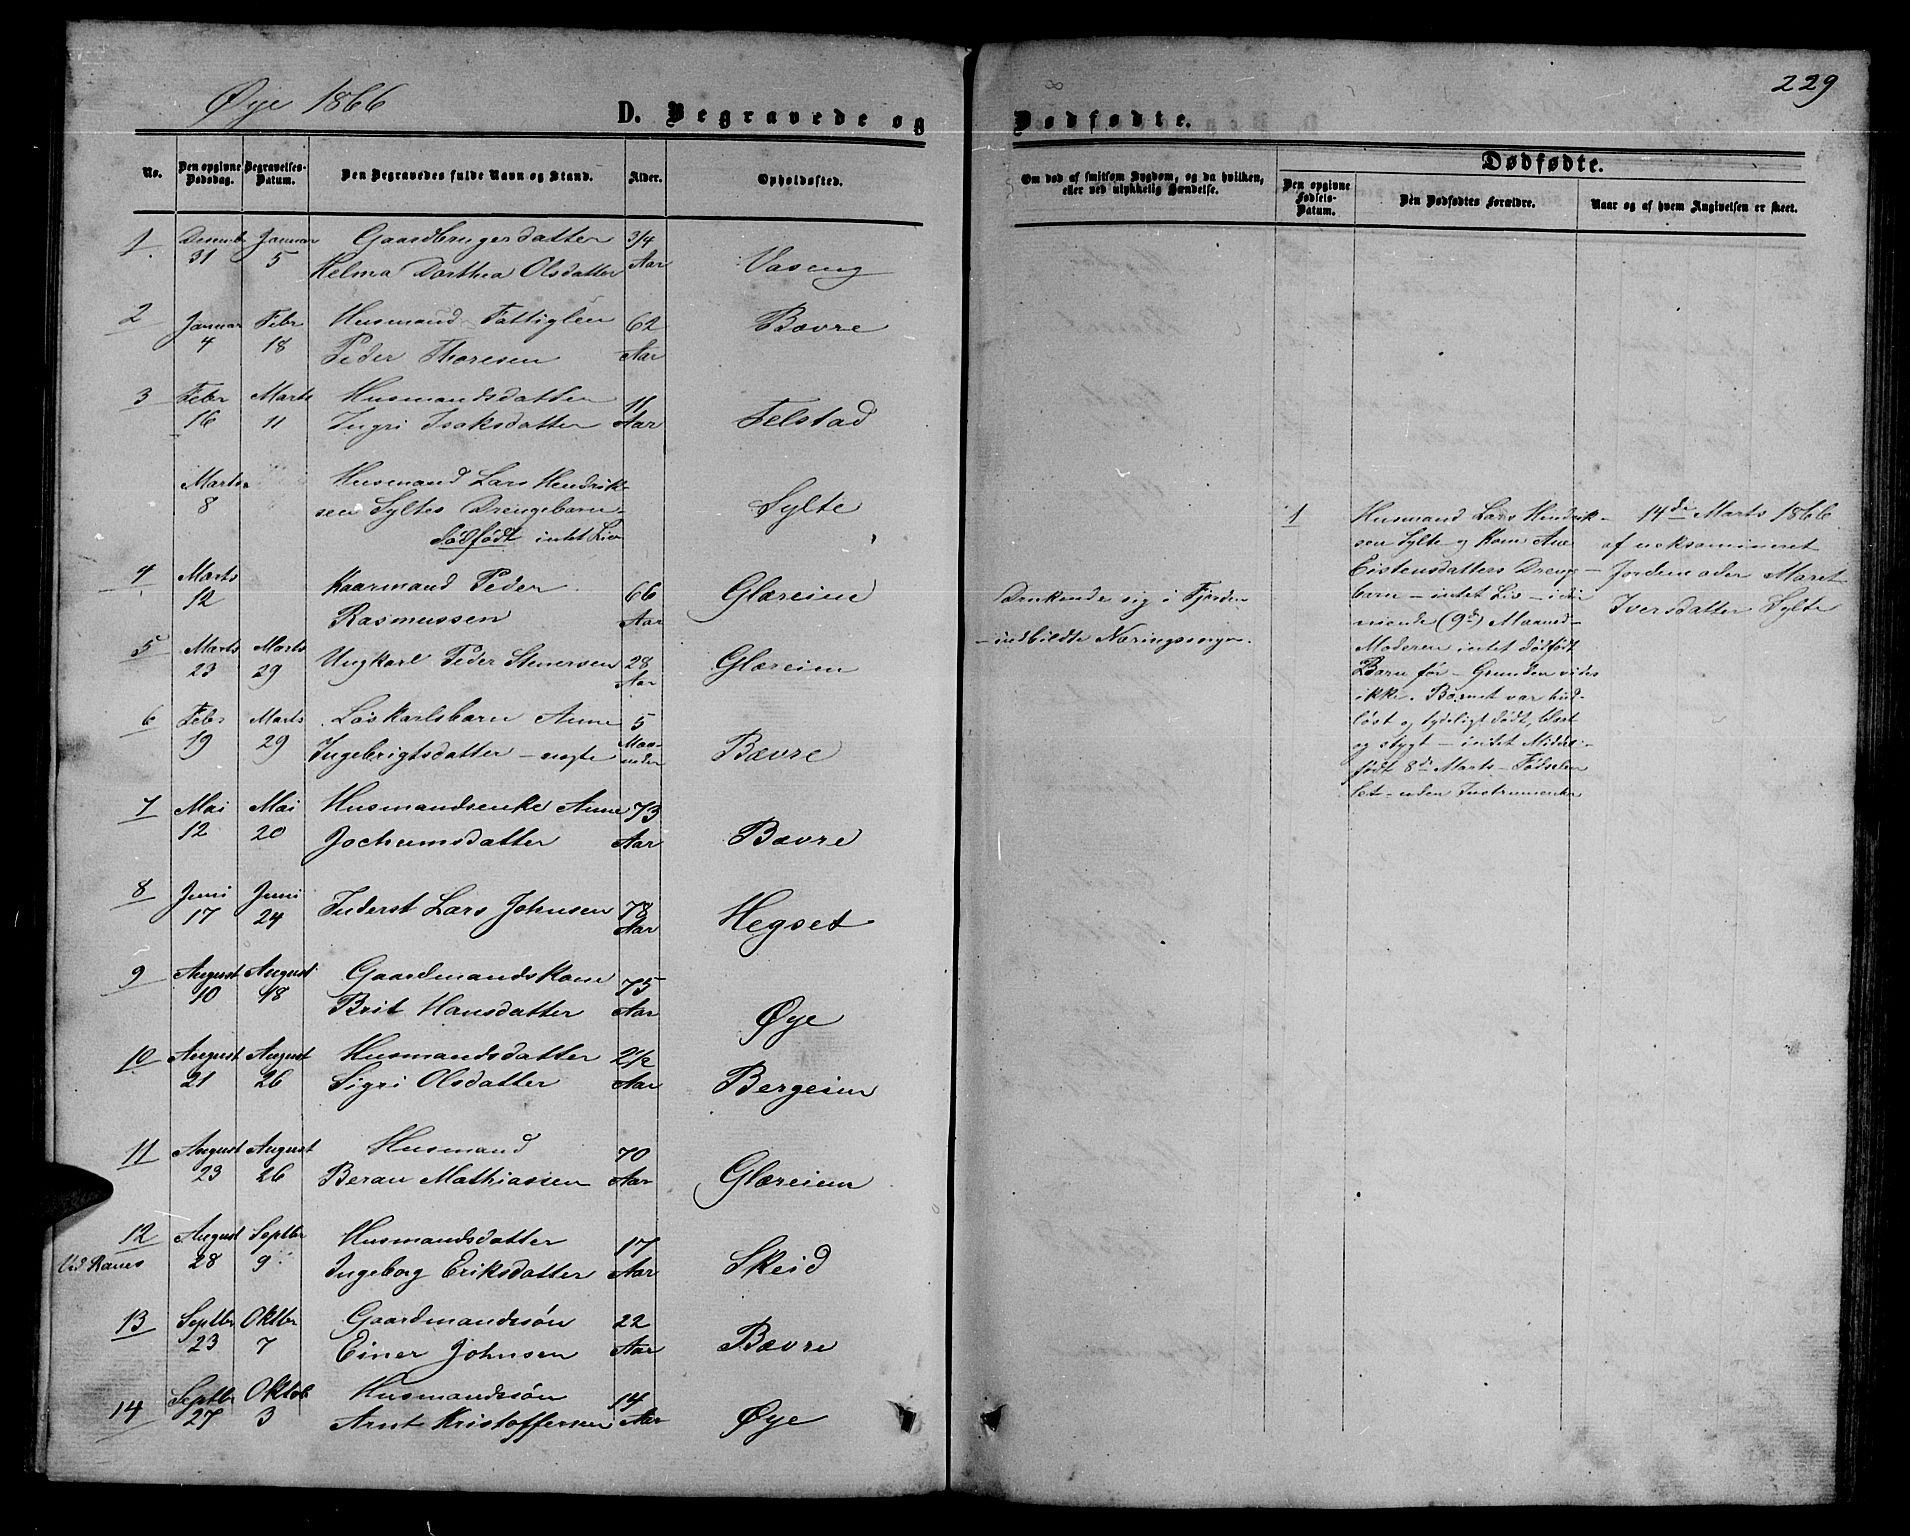 Øye 1866
D. Begravede og
No.
Den opgivne Dødsdag.
Begravelses-Datum.
Den Begravedes fulde Navn og Stand.
Alder.
Opholdssted.
1 Decemb Januar Gaardbrugersdatter 3/4
31 5 Helma Dorthea Olsdatter Aar Vaseng
2 Januar Febr Husmand Fattiglem 62 Bævre
4 18 Peder Thoresen Aar
3 Febr Marts Husmandsdatter 11
16 11 Ingri Isaksdatter Aar Telstad
Marts Husmand Lars Hendrik-
8 sen Syltes Drengebarn Sylte
dødfødt intet Liv
4 Marts Kaarmand Peder 66 Glæreien
12 Rasmussen Aar
5 Marts Marts Ungkarl Peder Stenersen 28 Glæreien
23 29 Aar
6 Febr Marts Løskarlsbarn Anne 5
19 29 Ingebrigtsdatter – uegte Maaneder Bævre
7 Mai Mai Husmandsenke Anne 73
12 20 Jochumsdatter Aar Bævre
8 Juni Juni Inderst Lars Johnsen 78
17 24 Aar Hegset
9 August August Gaardmandskone 75
10 18 Brit Hansdatter Aar Øye
10 August August Husmandsdatter 2 1/2
21 26 Sigri Olsdatter Aar Bergeien
11 August August Husmand 70
23 26 Beran Mathiassen Aar Glæreien
12 August Septbr Husmandsdatter 17
Ved Ranes 28 9 Ingeborg Eriksdatter Aar Skeid
13 Septbr Oktbr Gaardmandssøn 22
23 7 Einer Johnsen Aar Bævre
14 Septbr Oktob Husmandssøn 14
27 3 Arnt Kristoffersen Aar Øye
229
Dødfødte.
Om død af smitsom Sygdom, og da hvilken,
eller ved ulykkelig Hændelse.
Dødfødte.
Den opgivne Fødsels-Datum.
Den Dødfødtes Forældre.
Naar og af hvem Angivelsen er skeet.
Druknende sig i Fjorden
– indbildte Næringssorger.
1
Husmand Lars Hendrik-
sen Sylte og Kone Ane
Eistensdatters Drenge-
barn – intet Liv – i
niende (9de) Maaned –
Moderen intet dødfødt
Barn før – Grunden vides
ikke. Barnet var hud-
løst og tydeligt dødt, blert
og stygt – intet Middel
født 8de Marts – Fødselen
let – uden Instrumenter
14de Marts 1866
af ueksamineret
Jordemoder Maret
Iversdatter Sylte